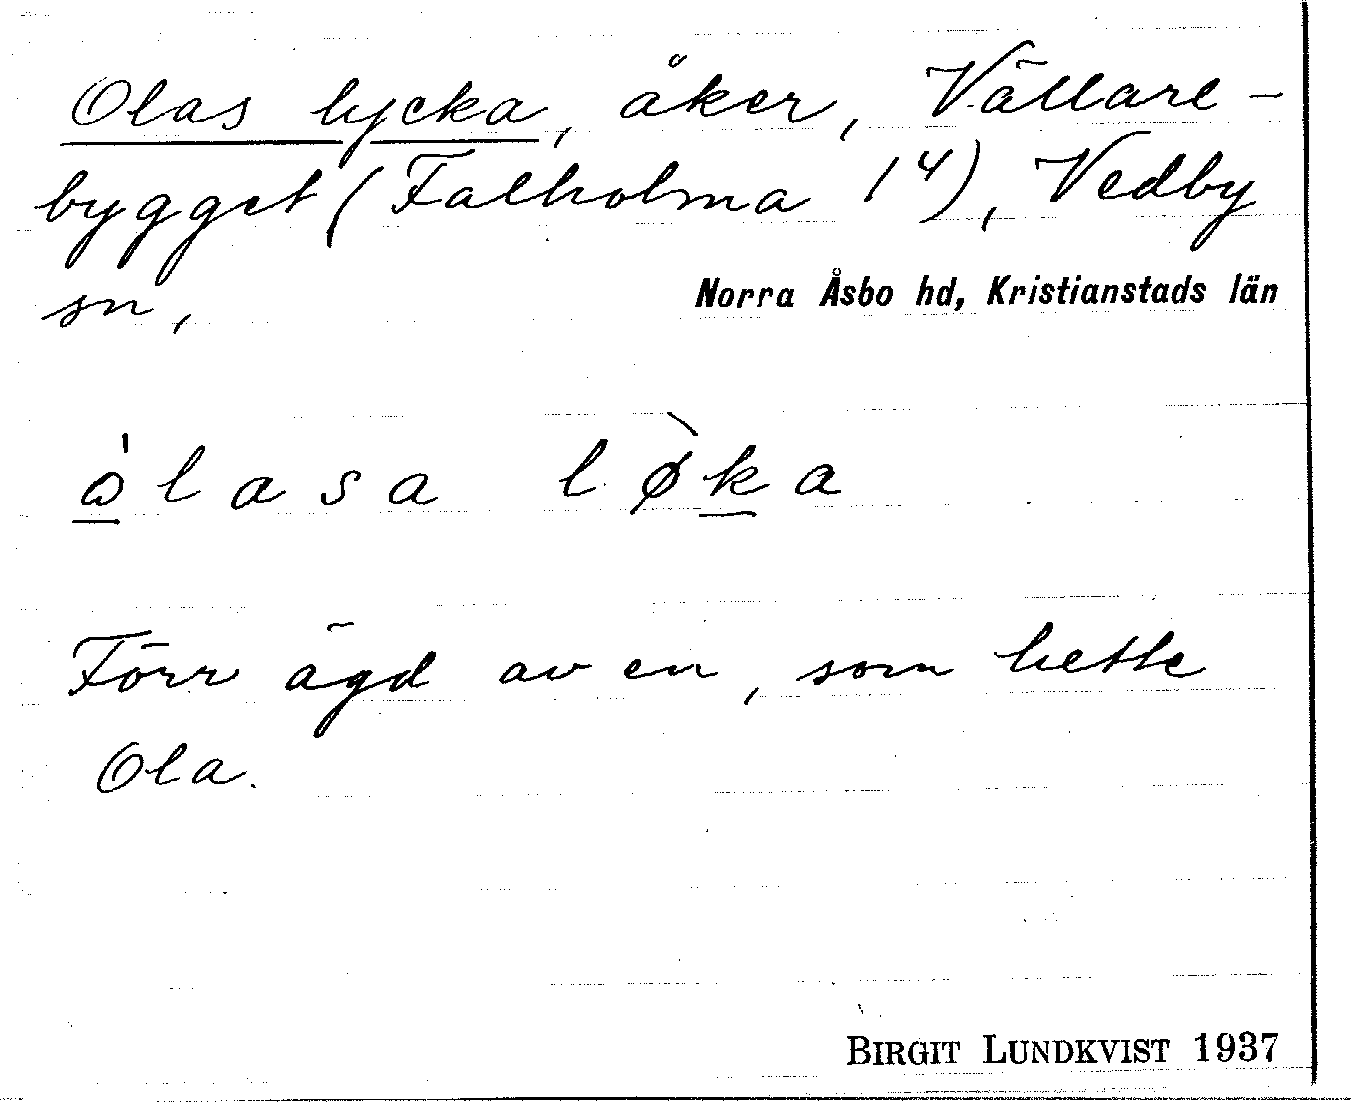 Olas lycka, åker, Vällare-
bygget (Falholma 1⁴), Vedby
sn, Norra Åsbo hd, Kristianstads län
ò̱lasa lø̀ḵa
Förr ägd av en, som hette
Ola.
BIRGIT LUNDKVIST 1937